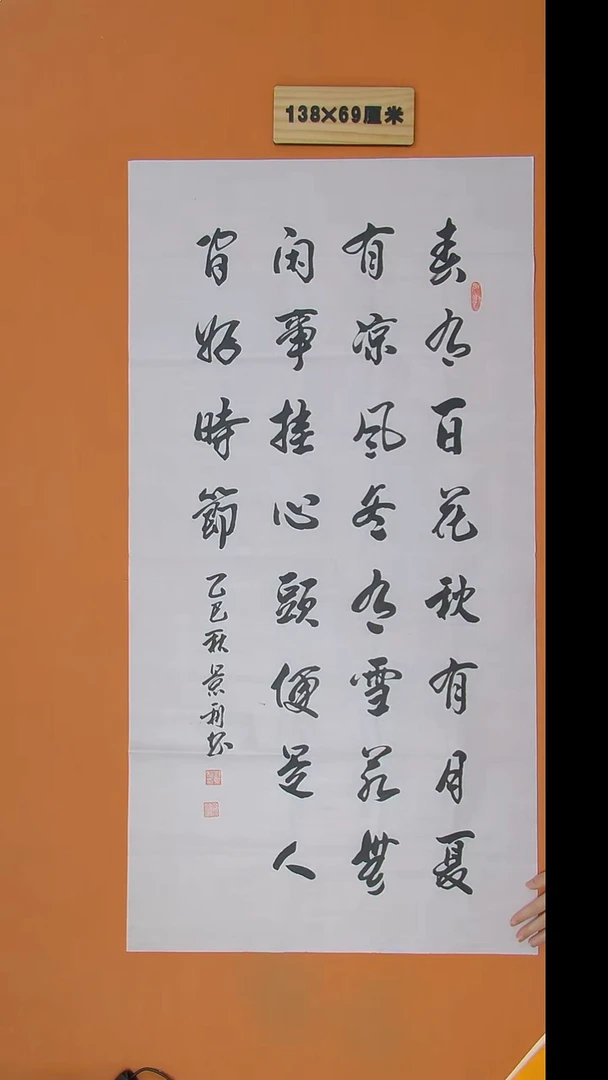 138×69厘米
春有百花秋有月夏
有凉风冬有雪若無
闲事挂心頭便是人
間好時節
乙巳秋景